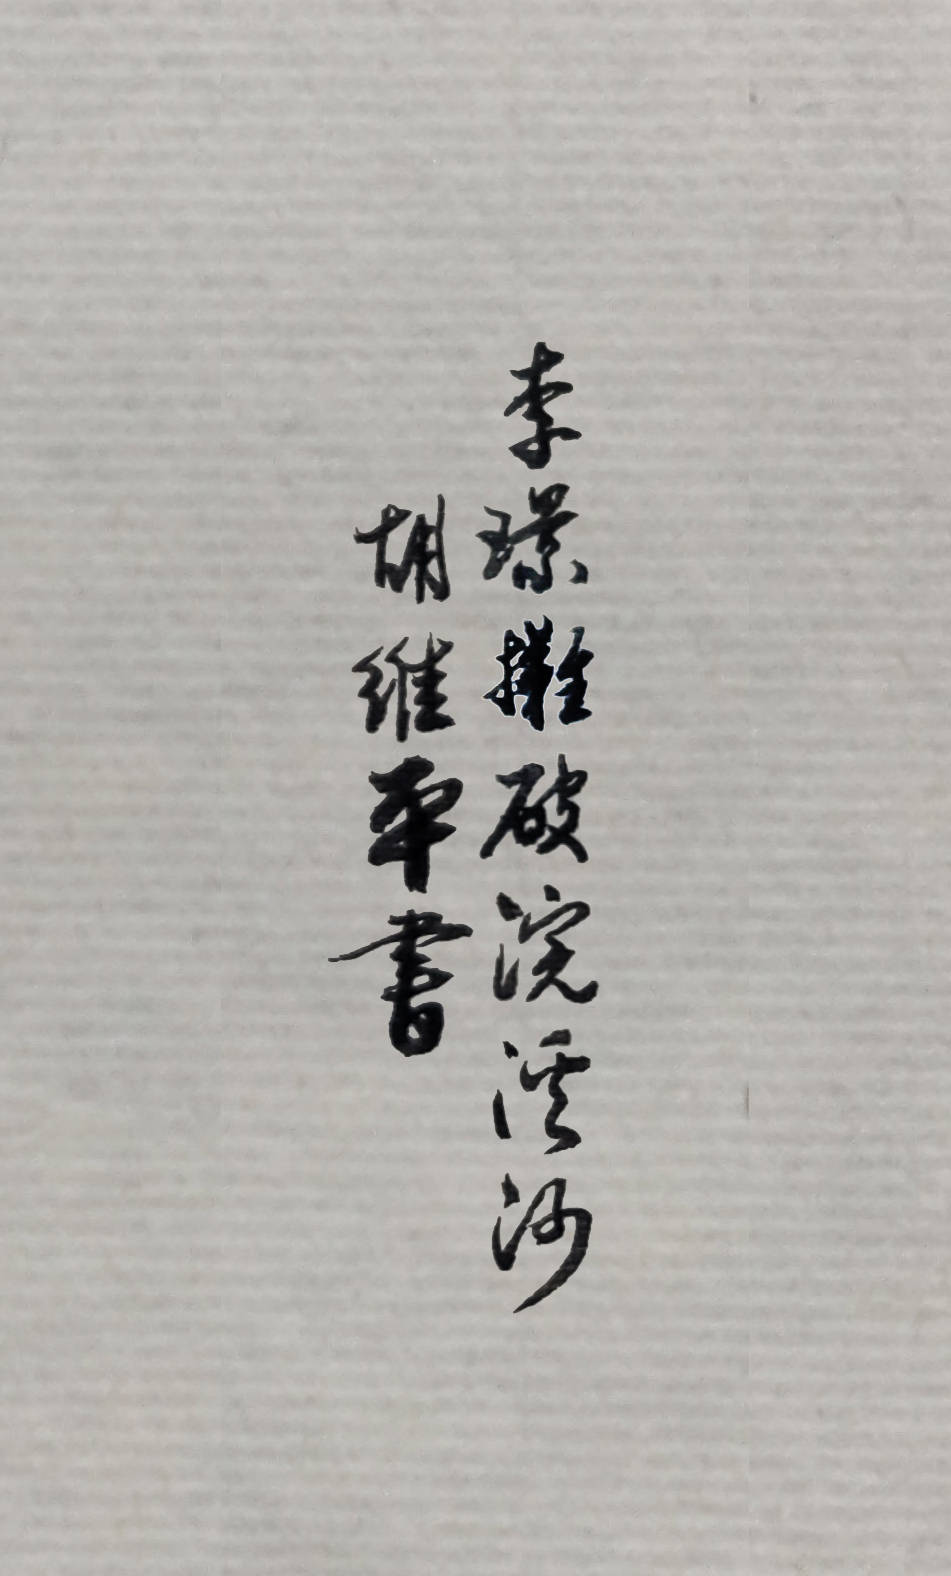 李璟攤破浣溪沙
胡維平書